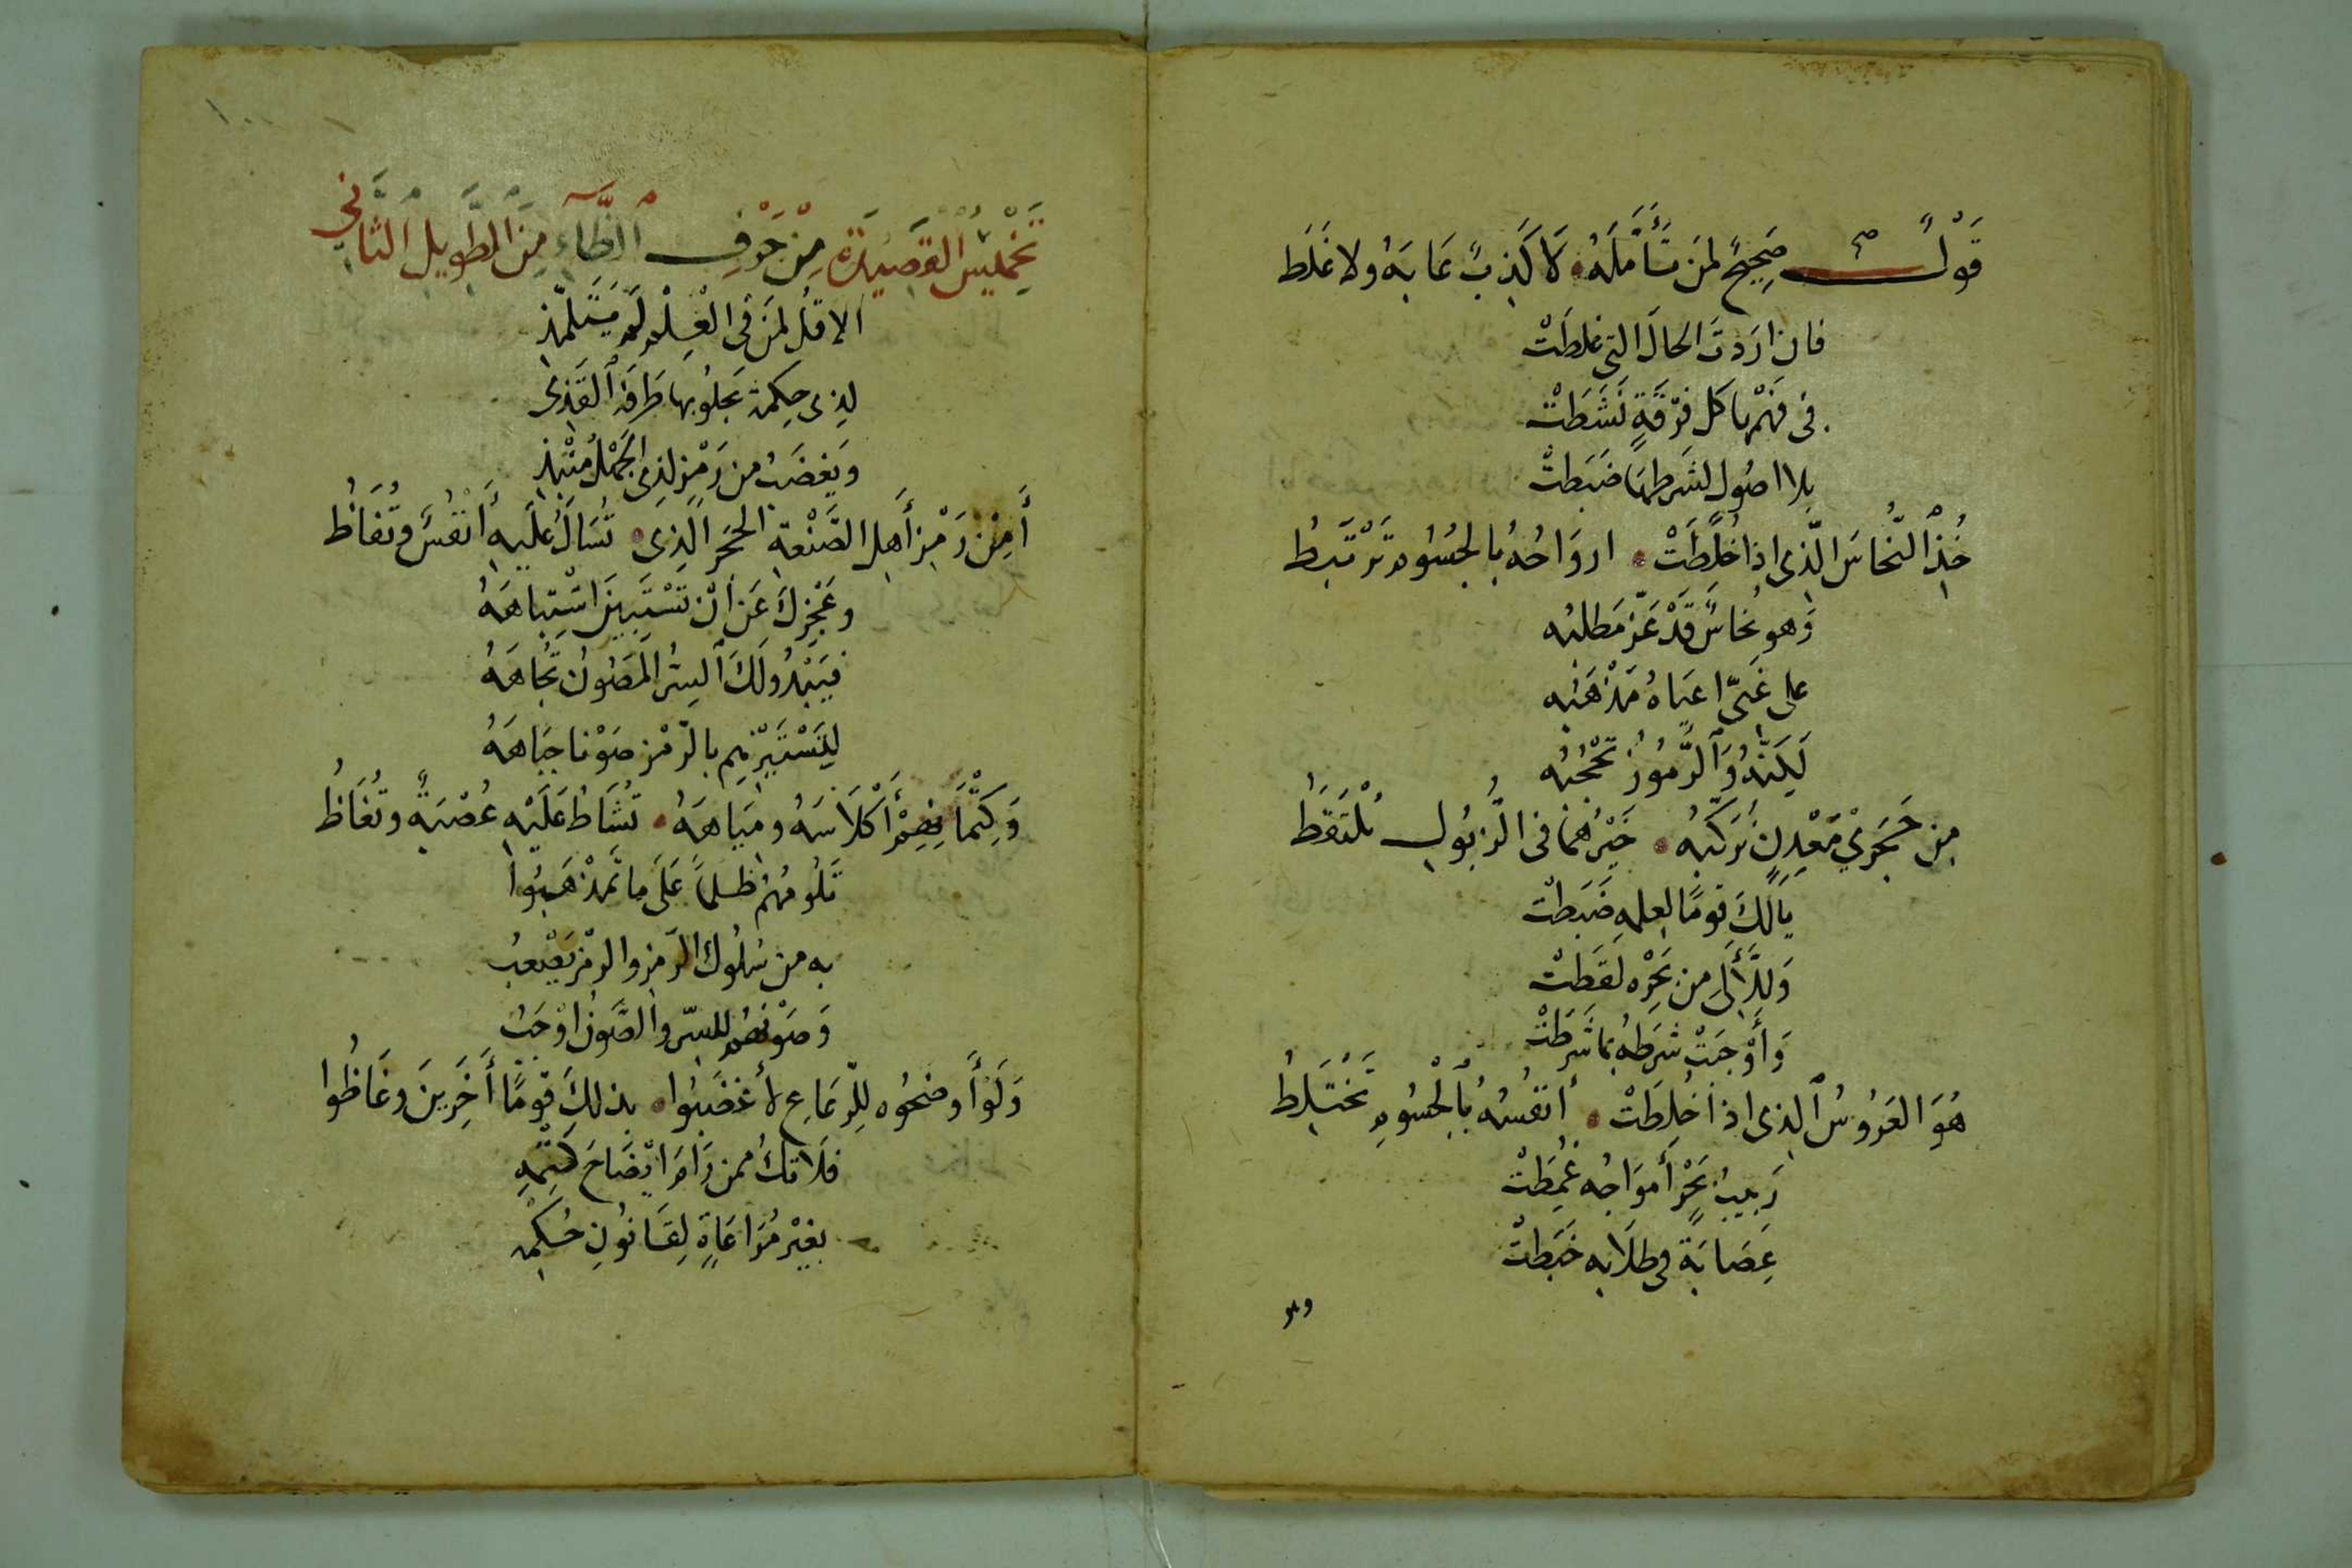 قَوْلٌ صَحِيحٌ لمَن تَأَمَّلَهُ لَا كَذِبٌ عَابَهُ ولا غَلَط
فان ارَدْتَ الحَالَ التى غلطَتْ
فى فهْمِهَا كل فِرْقَةٍ نَشَطَتْ
بلا اصُولٍ لشَرطهَا ضَبَطتْ
خُذِ النُّحَاسَ الَّذِى اذا خُلِطَتْ ارواحُهُ بالجُسُومِ تَرْتَبِطُ
وَهو نُحَاسٌ قَدْ عَزّ مَطلبُه
على غَبىّ اعيَاهُ مَذْهَبُه
وَالرُّمُوزُ تحْجُبُه
مِن حَجَرىْ مَعْدِنٍ نُرَكّبُه خَيْرُهُمَا فى الزُّبُولِ مُلْتَقَطُ
يَالَكَ قومًا لعِلمه ضَبَطتْ
من بَحْرِه لقَطَتْ
وَأَوْجَبَتْ شرطهُ بمَا شَرَطَتْ
هُوَ العَرُوسُ الذِى اذا خُلِطَتْ أنفُسُهُ بِالجُسُومِ تَخْتَلِطُ
رَبيبُ بَحْرٍ أَموَاجُه غُمِطَتْ
عِصَابَة فى طلَابه خَبَطتْ
تَخْمِيسُ القَصِيدَةِ مِنْ حَرْفِ الظَّاءِ مِنَ الطَّوِيلِ الثَّانِى
ألا قُل لمَن فى العِلْمِ لَم يَتَتَلمَذِ
لذِى حِكمة يجلُو بها طَرفَه القَذِى
ويغضَبُ من رَمْزٍ لذِى الجَهْلِ مُنْبِذِ
أَمِنْ رَمْزِ أَهلِ الصَّنْعةِ الحَجَر الَّذِى تُسَالُ عَلَيهِ أَنْفُسٌ وتُفَاظُ
وعَجْزِكَ عَن أنْ تَسْتَبِينَ اشْتِبَاهَهُ
فيَبْدُو لَكَ السِرُّ المَصُونُ تُجَاهَهُ
بالرّمْز صَوْنا جبَاهَهُ
وَكِتْمَانِهِمْ أَكْلَاسَهُ ومِيَاهَهُ تُشَاطُ عَلَيْهِ عُصْبَةٌ وتُغَاظُ
تَلُومُهُمْ ظلمًا عَلَى مَا تمَذْهَبُوا
به من سُلُوك الرّمزِ والرمْزُ يَصْعبُ
وَصَوْنهُم للسّرِ والصَّونُ أوْجَبُ
وَلَوْ أَوضحُوه لِلرّعَاعِ لأغضَبُوا بذلكَ قومًا أَخَرِينَ وغَاظُوا
فلَا تكُ ممن رَامَ ايْضَاحَ كَتْمِهِ
بغيْرِ مُرَاعَاةٍ لِقَانُونِ حُكمِهِ